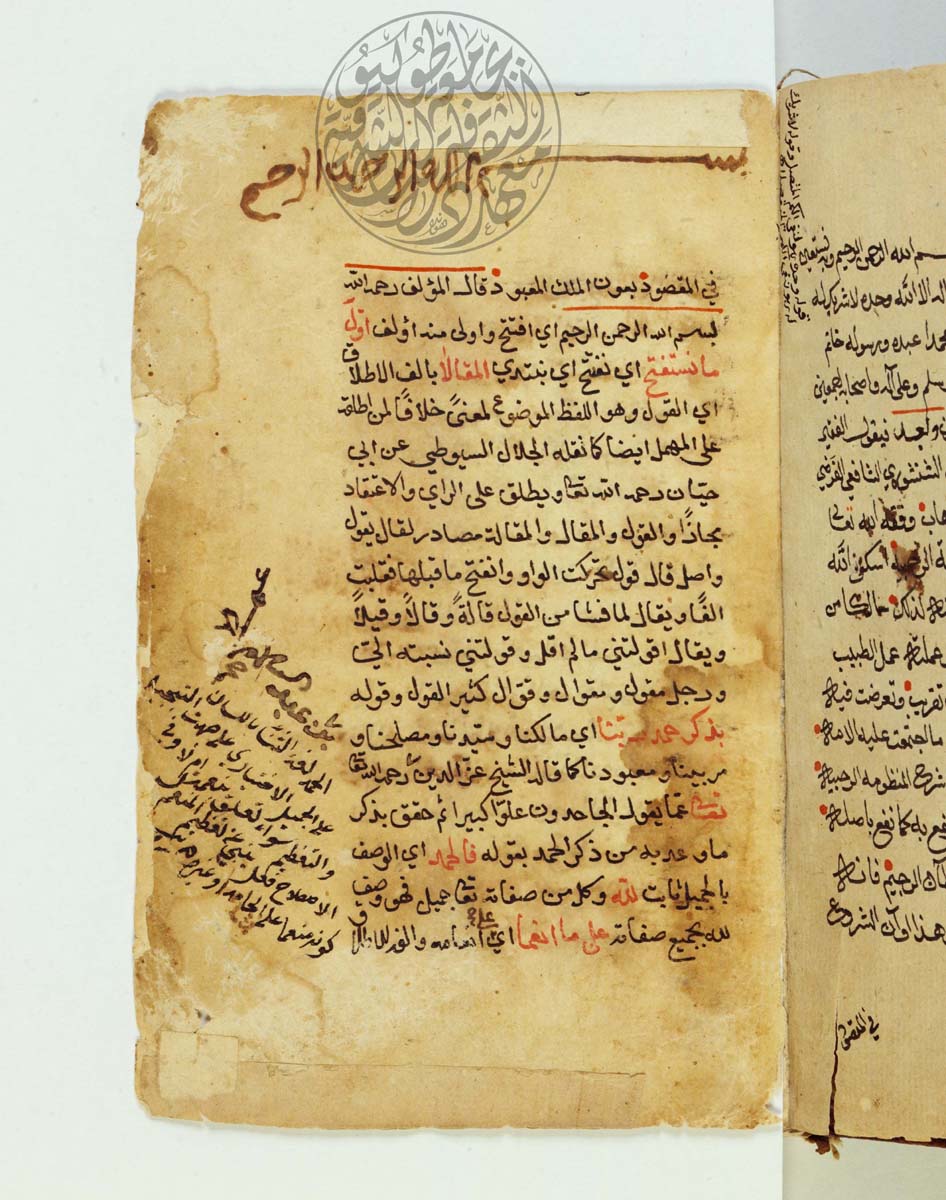 بسم الله الرحمن الرحيم
في المقصود بعون الملك المعبود قال المؤلف رحمه الله
بسم الله الرحمن الرحيم اي افتتح واولى منه اؤلف اول
ما نستفتح اي نفتتح اي نبتدي المقالا بالف الاطلاق
اي القول وهو اللفظ الموضوع لمعنىً خلافًا لمن اطلقه
على المهمل ايضا كما نقله الجلال السيوطي عن ابي
حيان رحمه الله تعا ويطلق على الراي والاعتقاد
مجازًا والقول والمقال والمقالة مصادر لقال يقول
واصل قال قول تحركت الواو وانفتح ما قبلها فقلبت
الفًا ويقال لما فشا من القول قالةً وقالاً وقيلاً
ويقال اقولتني مالم اقل وقولتني نسبته الي
ورجل مقول ومقوال وقوال كثير القول وقوله
بذكر حمد ربنا اي مالكنا وسيدنا ومصلحنا و
مربينا ومعبودنا كما قاله الشيخ عز الدين رحمه الله تعا
تعالى عما يقول الجاحدون علوًا كبيرا ثم حقق بذكر
ما وعد به من ذكر الحمد بقوله فالحمد اي الوصف
بالجميل ثابت لله وكل من صفاته تعا جميل فهو وصف
لله بجميع صفاته على ما انعما اي على انعامه والفه للاطلاق
الحمد لغة الثنا باللسان
على الجميل الاختياري على جهة التبجيل
والتعظيم سواء تعلق بنعمة ام لا وفي
الاصطلاح فعل ينبئ عن تعظيم المنعم
كونه منعما على الحامد او غيره
سم الله الرحمن الرحيم وبه نستعين
اله الا الله وحده لا شريك له
محمدا عبده ورسوله خاتم
سلم وعلى آله واصحابه اجمعين
وبعد فيقول الفقير
الشنشوري الشافعي الفرضي
وفقه الله تعالى
اسكنه الله
لذلك
عمل الطبيب
تقريب وتعرضت فيه
ما اجتمعت عليه الامة
شرح المنظومه الرحبية
فع به كما نفع باصله
الرحيم فانه
هذا اوان الشروع
في المقصود